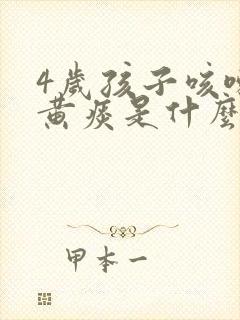 4歲孩子咳嗽
黃痰是什麼
甲本一